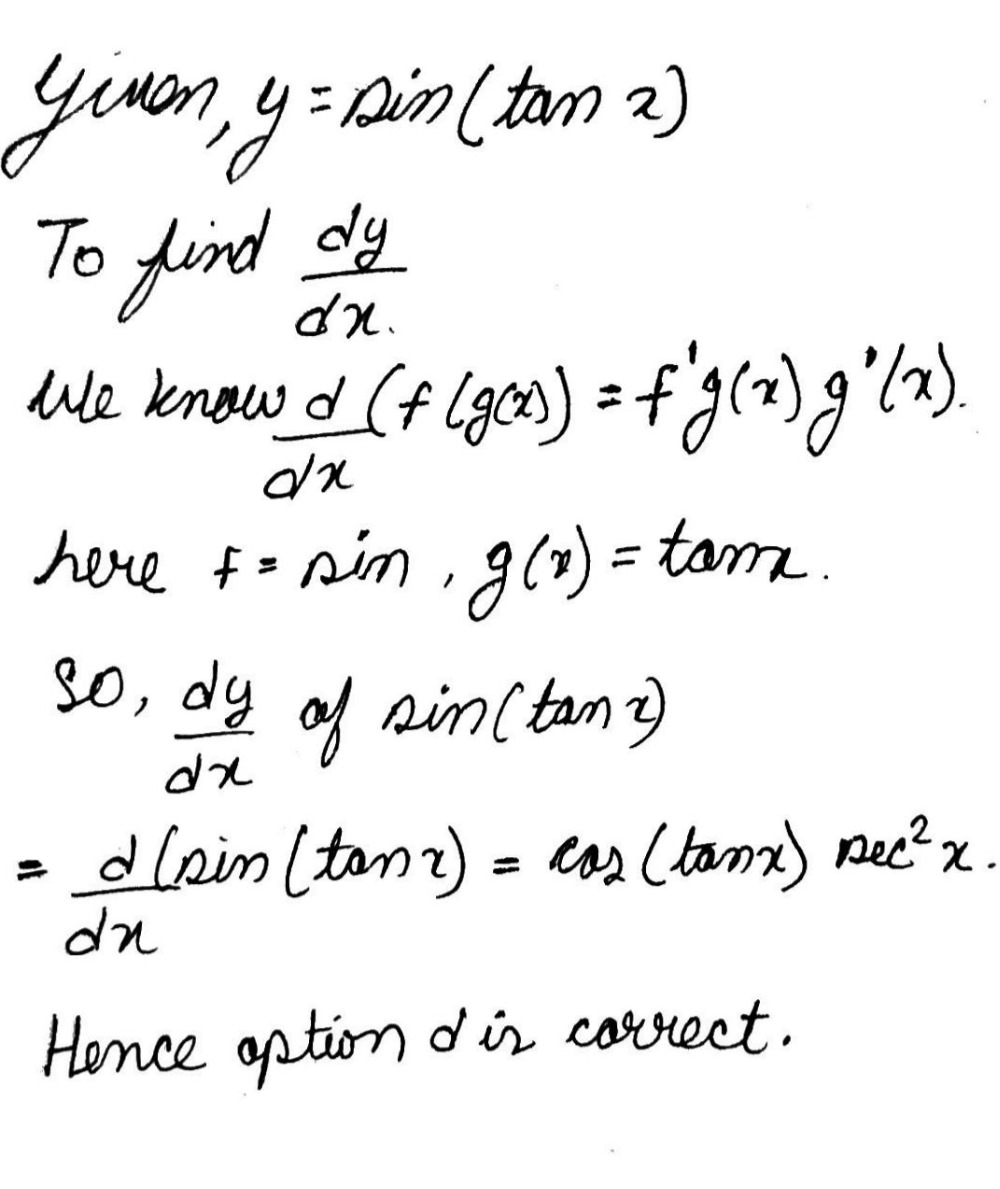 Given, y = sin(tan x)
To find dy/dx.
We know d/dx (f(g(x)) = f'g(x) g'(x).
here f = sin, g(x) = tanx.
So, dy/dx of sin(tan x)
= d/dx (sin(tan x) = cos(tanx) sec²x.
Hence option d is correct.